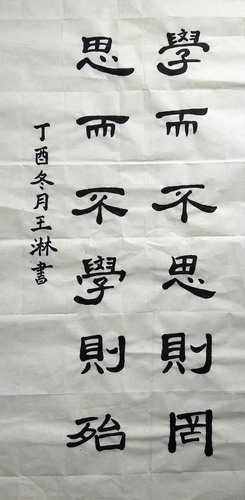 學而不思則罔
思而不學則殆
丁酉冬月王淋書